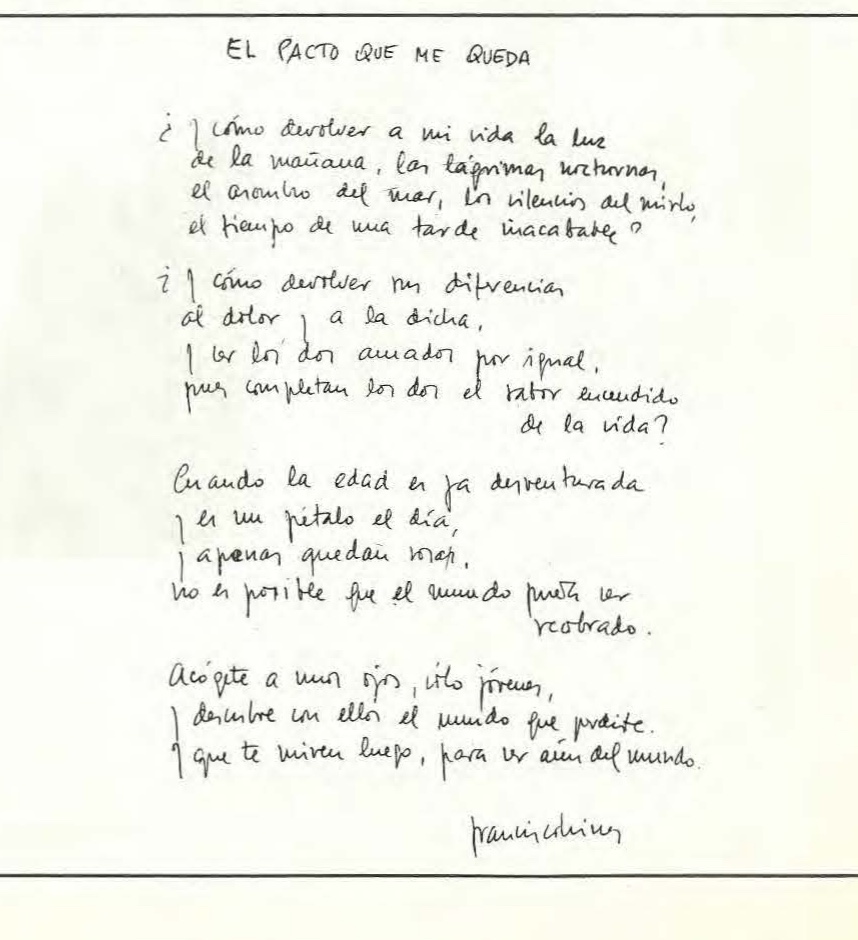 EL PACTO QUE ME QUEDA
¿Y cómo devolver a mi vida la luz
de la mañana, las lágrimas nocturnas,
el asombro del mar, los silencios del mirlo,
el tiempo de una tarde inacabable?
¿Y cómo devolver sus diferencias
al dolor y a la dicha,
y ser los dos amados por igual,
pues completan los dos el sabor encendido
de la vida?
Cuando la edad es ya desventurada
y es un pétalo el día,
y apenas quedan rosas,
no es posible que el mundo pueda ser
recobrado.
Acógete a unos ojos, sólo jóvenes,
y descubre con ellos el mundo que perdiste.
Y que te miren luego, para ser aún del mundo.
Francisco Brines